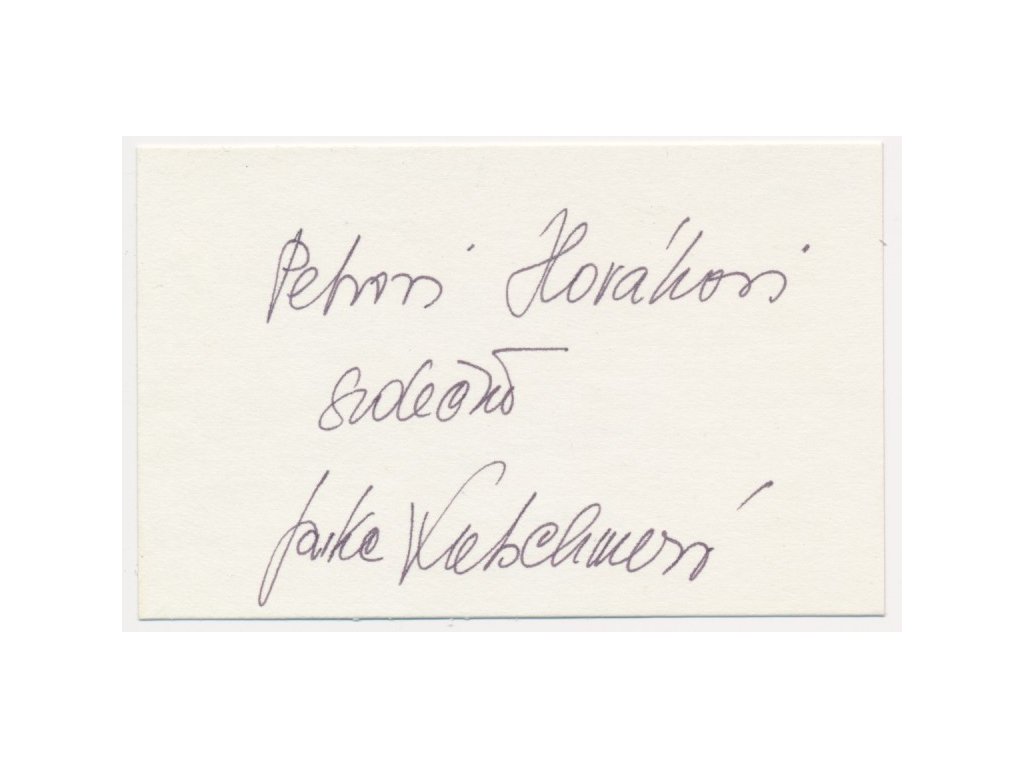 Petrovi Horákovi
srdečně
Jarka Kretschmerová